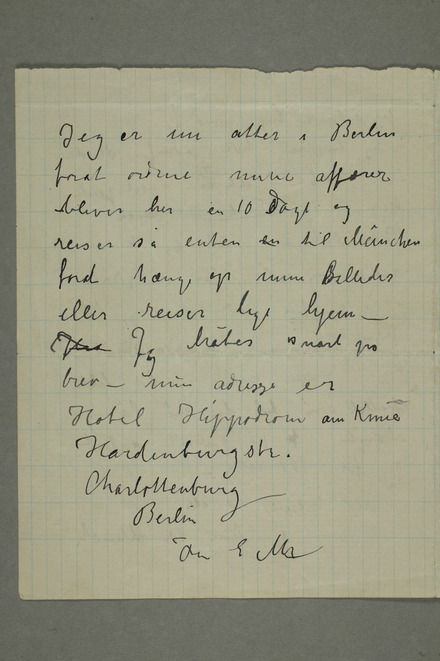 Jeg er nu atter i Berlin
forat ordne mine affærer
bliver her en 10 Dage og
reiser så enten til München
forat hænge op mine Billeder
eller reiser lige hjem –
Jeg håber snart på
brev – min adresse er
Hotel Hippodrom am Knie
Hardenburgstr.
Charlottenburg
Berlin
Din E M